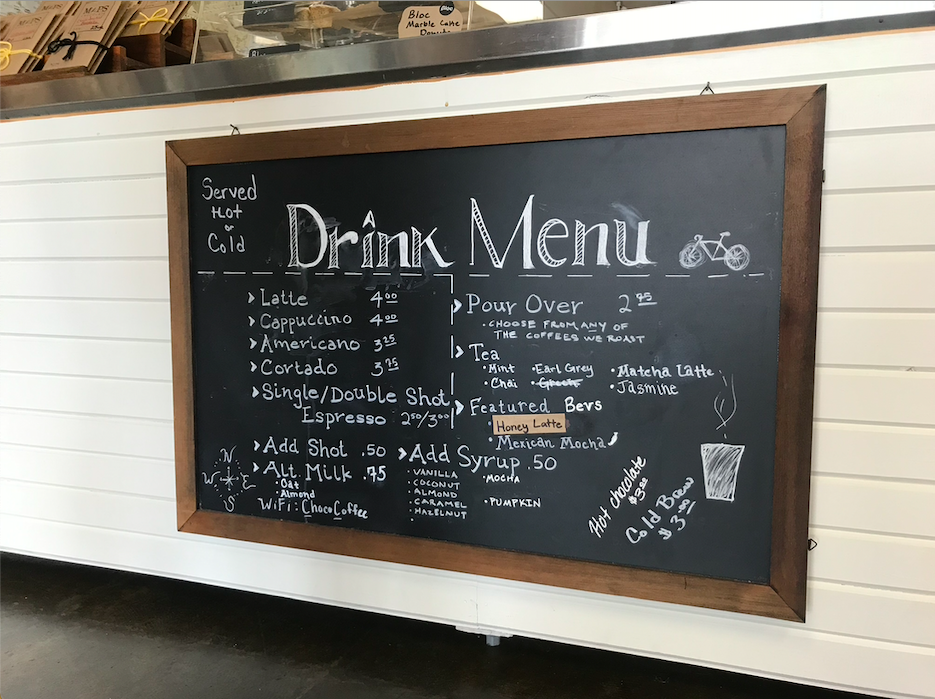 MAPS
MAPS
Bloc
Marble Cake
Donuts
Bloc
Served
Hot
or
Cold
Drink Menu
Latte 4.00
Cappuccino 4.00
Americano 3.25
Cortado 3.75
Single/Double Shot
Espresso 2.50/3.00
Add Shot .50
Alt Milk .75
• Oat
Almond
WiFi: ChocoCoffee
N
W E
S
Pour Over 2.95
• CHOOSE FROM ANY OF
THE COFFEES WE ROAST
Tea
• Mint • Earl Grey • Matcha Latte
• Chai • Green • Jasmine
Featured Bevs
• Honey Latte
• Mexican Mocha
Add Syrup .50
• VANILLA • MOCHA
• COCONUT
• ALMOND
• CARAMEL • PUMPKIN
• HAZELNUT
•
Hot chocolate
$3.00
Cold Brew
$3.50